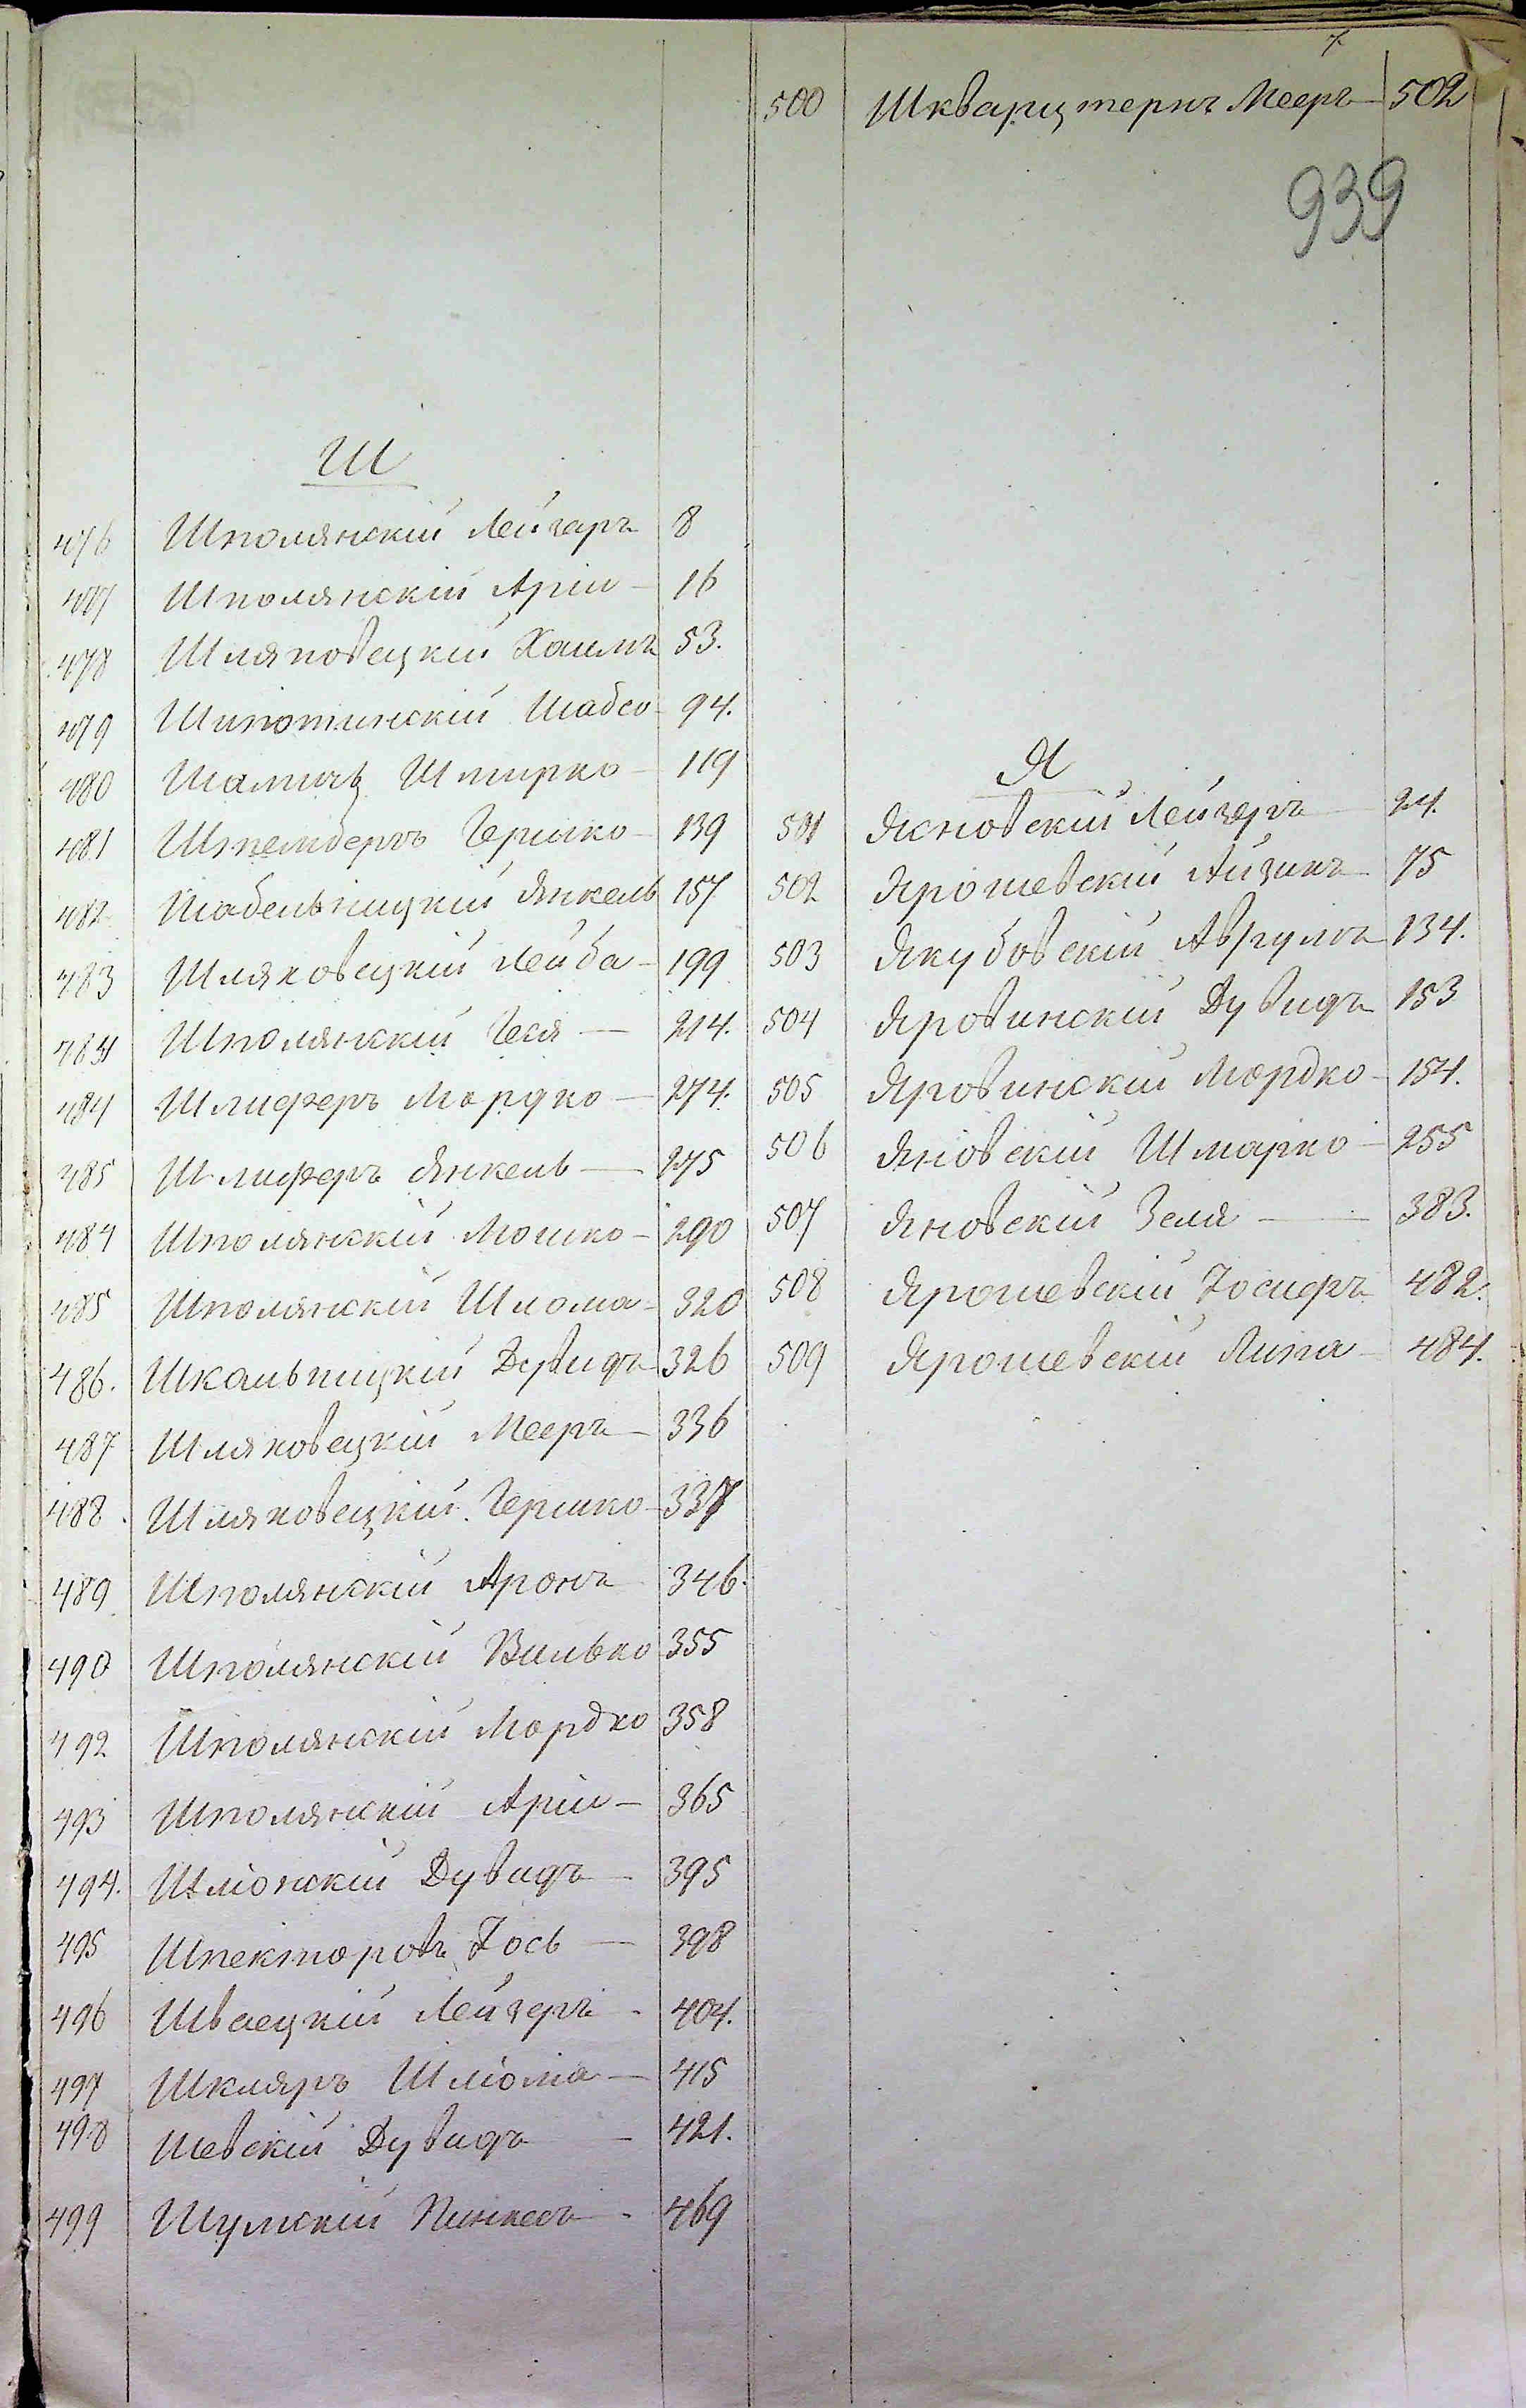 Ш
476 Шполянскій Лейзеръ 8
477 Шполянскій Арій — 16
478 Шляховецкій Хаимъ 53.
479 Шипотинскій Шабсо — 94.
480 Шамисъ Шмирко — 119
481 Шпемберъ Гершко — 139
482 Шабельницкій Янкель 157
483 Шляховецкій Лейба — 199
484 Шполянскій Геся — 214.
484 Шлиферъ Мордко — 274.
485 Шлиферъ Янкель — 275
484 Шполянскій Мошко — 290
485 Шполянскій Шлома — 320
486. Шкальницкій Дувидъ 326
487 Шляховецкій Мееръ — 336
488. Шляховецкій Гершко — 337
489 Шполянскій Аронъ 346.
490 Шполянскій Вилько 355
492 Шполянскій Мордко 358
493 Шполянскій Арій — 365
494. Шліонскій Дувидъ — 395
495 Шпекторовъ Іось — 398
496 Шваецкій Лейзеръ 404.
497 Шкляръ Шліома — 415
498 Шевскій Дувидъ — 421.
499 Шумскій Пинкесъ 469
7
500 Шкварцтернъ Мееръ — 502
939
Я
501 Ясновскій Лейзеръ — 24.
502 Ярошевскій Айзикъ — 75
503 Якубовскій Аврумъ — 134.
504 Яровинскій Дувидъ 153
505 Яровинскій Мордко — 154.
506 Яновскій Шмарко — 255
507 Яновскій Зеля — 383.
508 Ярошевскій Іосифъ 482.
509 Ярошевскій Липа — 484.